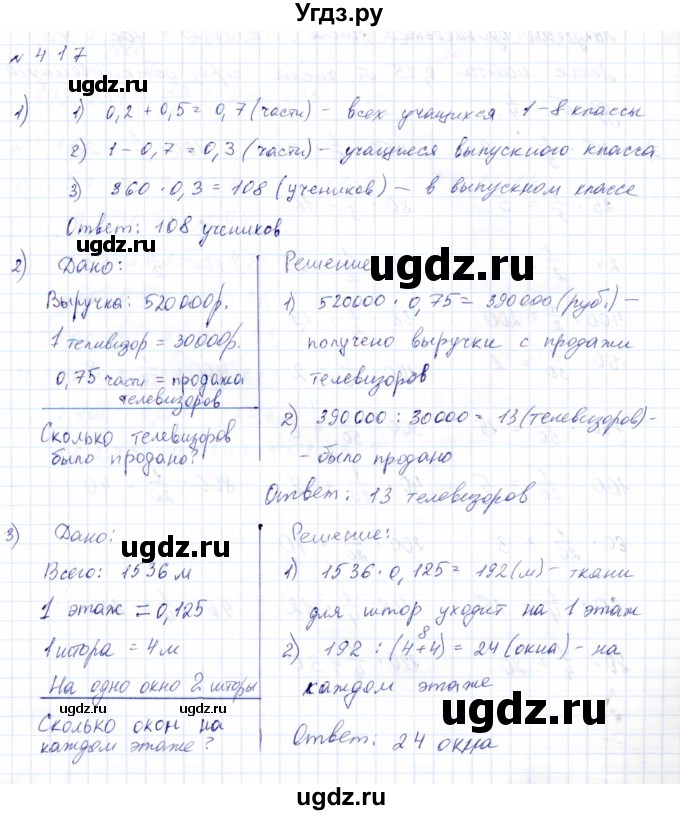 Угдз.ру
№ 417
ugdz.ru ugdz.ru
1) 1) 0,2 + 0,5 = 0,7 (части) - всех учащихся 1-8 классы
2) 1 - 0,7 = 0,3 (части) - учащиеся выпускного класса
3) 360 · 0,3 = 108 (учеников) - в выпускном классе
Ответ: 108 учеников
ugdz.ru
2) Дано:
Выручка: 520000р.
1 телевизор = 30000р.
0,75 части = продажа
телевизоров
Сколько телевизоров
было продано?
Решение:
ugdz.ru
1) 520000 · 0,75 = 390000 (руб.) -
получено выручки с продажи
телевизоров
2) 390000 : 30000 = 13 (телевизоров) -
- было продано
Ответ: 13 телевизоров
3) Дано:
ugdz.ru
Всего: 1536 м
1 этаж = 0,125
1 штора = 4 м
На одно окно 2 шторы
Сколько окон на
каждом этаже?
Решение:
1) 1536 · 0,125 = 192 (м) - ткани
для штор уходит на 1 этаж
8
2) 192 : (4+4) = 24 (окна) - на
каждом этаже
ugdz.ru
Ответ: 24 окна
ugdz.ru ugdz.ru
ugdz.ru